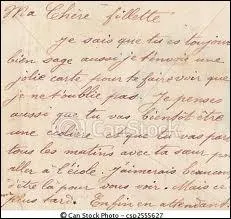 Ma Chère fillette
je sais que tu es toujours
bien sage aussi je t'envoie une
jolie carte pour te faire voir que
je ne t'oublie pas. Je pense
aussi que tu vas bientôt être
une
tous les matins avec ta sœur pour
aller à l'école. j'aimerais beaucoup
être là pour vous voir. Mais ce
plus tard. Enfin en attendant
© Can Stock Photo
© Can Stock Photo - csp2555627